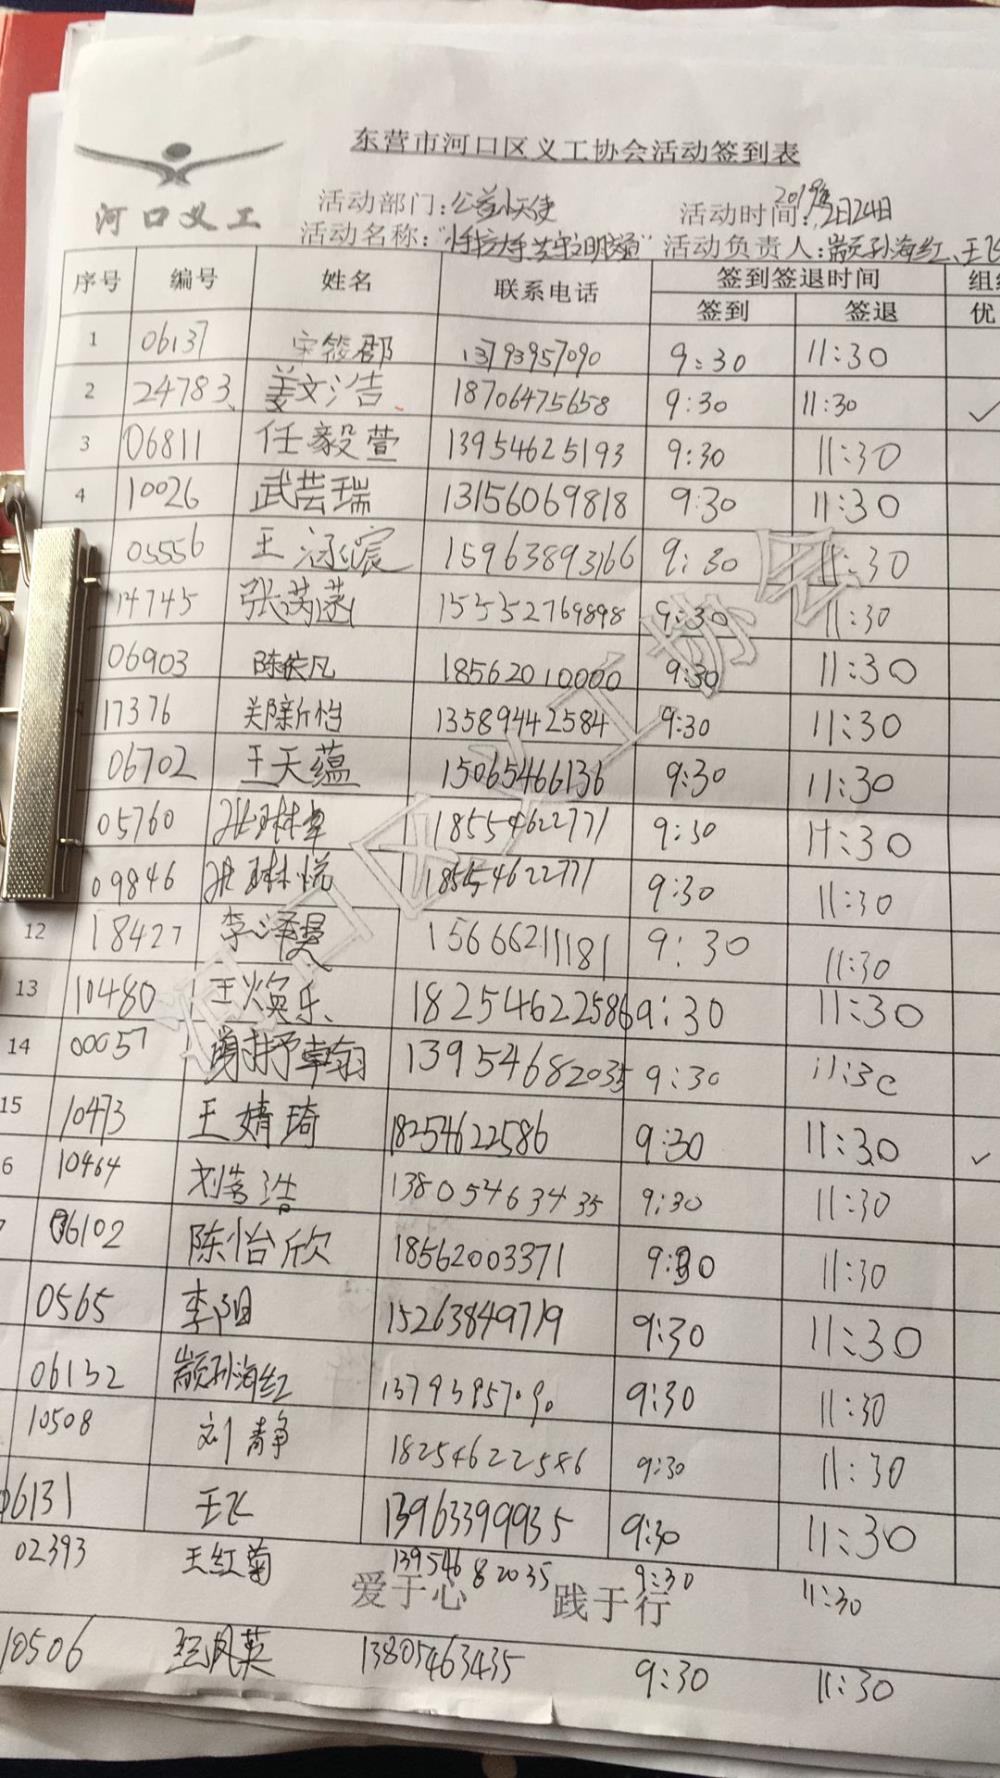 东营市河口区义工协会活动签到表
河口义工
活动部门:公益小天使 活动时间:2019年2月24日
活动名称: 活动负责人:颛孙海红、王飞
序号 编号 姓名 联系电话 签到签退时间
签到 签退 优
1 06137 13793957090 9:30 11:30
2 24783 姜文浩 18706475658 9:30 11:30 ✓
3 06811 任毅萱 13954625193 9:30 11:30
4 10026 武芸瑞 13156069818 9:30 11:30
05556 王涵宸 15963893166 9:30 11:30
14745 张芮菡 15552769898 9:30 11:30
06903 陈俟凡 18562010000 9:30 11:30
17376 关隙新怡 13589442584 9:30 11:30
06702 王天蕴 15065466136 9:30 11:30
05760 张琳卓 18554622771 9:30 11:30
09846 张琳悦 18554622771 9:30 11:30
12 18427 李泽昊 15666211181 9:30 11:30
13 10480 王焕乐 18254622586 9:30 11:30
14 00057 13954682035 9:30 11:30
15 10473 王婧琦 18254622586 9:30 11:30 ✓
6 10464 13805463435 9:30 11:30
06102 陈怡欣 18562003371 9:30 11:30
0565 李阳 15263849719 9:30 11:30
06132 颛孙海红 13793957090 9:30 11:30
10508 刘静 18254622586 9:30 11:30
06131 王飞 13963399935 9:30 11:30
02393 王红菊 13954682035 9:30 11:30
爱于心 践于行
10506 13805463435 9:30 11:30
河口区义工协会